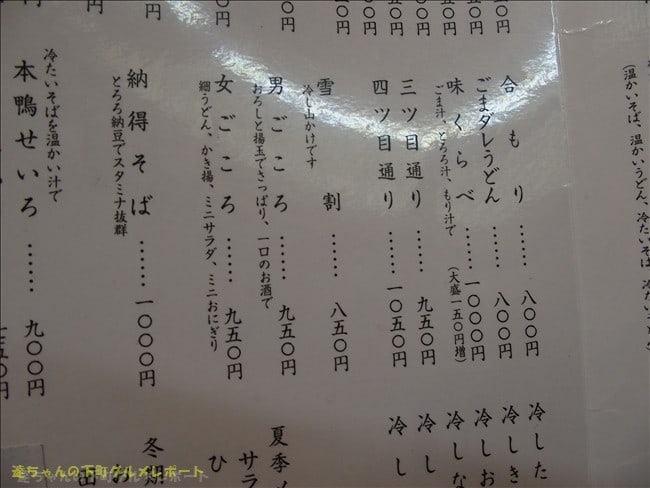 (温かいそば、温かいうどん、冷たいそば、冷たいうどん
合もり……八〇〇円
ごまダレうどん……八〇〇円
味くらべ……一〇〇〇円
ごま汁、とろろ汁、もり汁で
(大盛一五〇円増)
三ツ目通り……九五〇円
四ツ目通り……一〇五〇円
雪割……八五〇円
冷し山かけです
男ごころ……九五〇円
おろしと揚玉でさっぱり、一口のお酒で
女ごころ……九五〇円
細うどん、かき揚、ミニサラダ、ミニおにぎり
納得そば……一〇〇〇円
とろろ納豆でスタミナ抜群
冷たいそばを温かい汁で
本鴨せいろ……九〇〇円
冷した
冷しき
冷しお
冷しな
冷し
冷し
夏季
サラ
ひ
冬期
お
達ちゃんの下町グルメレポート